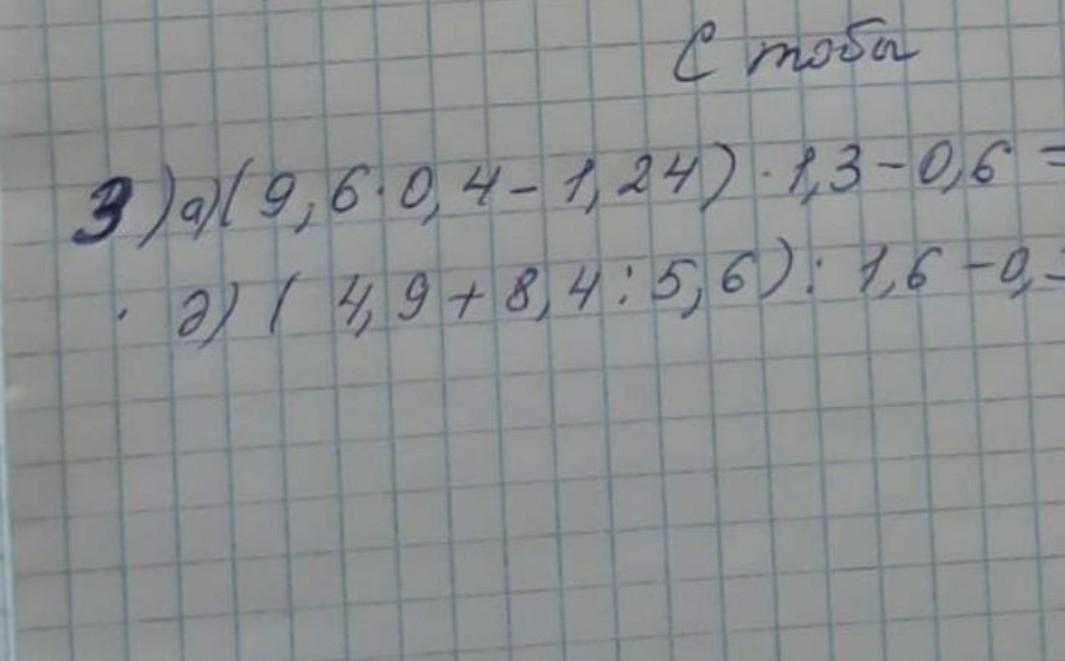 С тобы
3) а) (9,6·0,4-1,24)·1,3-0,6=
д) (4,9+8,4:5,6):1,6-0,